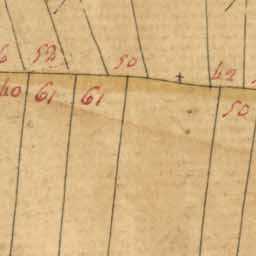 52 50 42
40 61 61 50